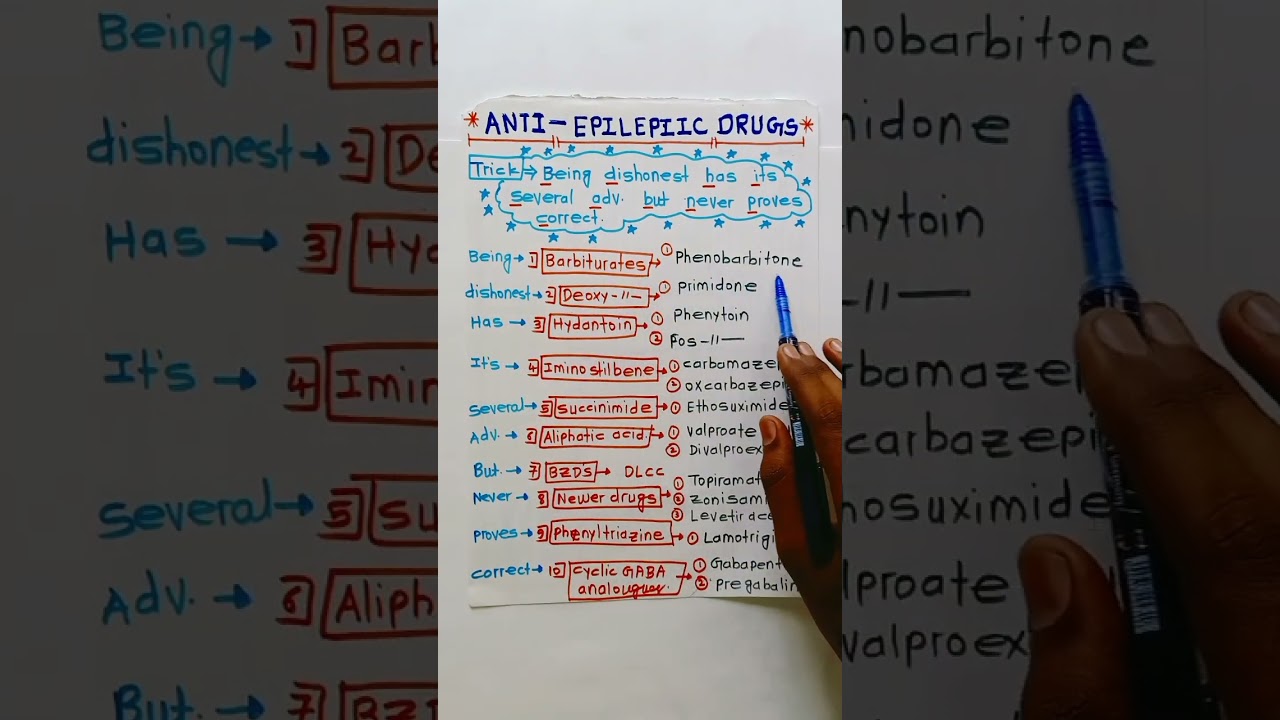 * ANTI - EPILEPIIC DRUGS *
Trick ⇒ Being dishonest has its
several adv. but never proves
correct.
Being → 1] Barbiturates → ① Phenobarbitone
dishonest → 2] Deoxy -〃- → ① primidone
Has → 3] Hydantoin → ① Phenytoin
② Fos -〃-
It's → 4] Iminostilbene → ① carbamaze
② oxcarbazepi
several → 5] succinimide → ① Ethosuximide
Adv. → 6] Aliphatic acid. → ① valproate
② Divalproex
But. → 7] BZD'S → DLCC
Never → 8] Newer drugs → ① Topiramat
② zonisami
③ Levetirac
proves → 9] Phenyltriazine → ① Lamotrigi
correct → 10] cyclic GABA → ① Gabapent
analougues. ② Pregabalin
Being → 1] Barb
dishonest → 2] De
Has → 3] Hyd
It's → 4] Imin
several → 5] su
Adv. → 6] Aliph
But. → 7] BZD
nobarbitone
nidone
nytoin
-〃-
rbamaze
carbazepi
hosuximide
lproate
valproex